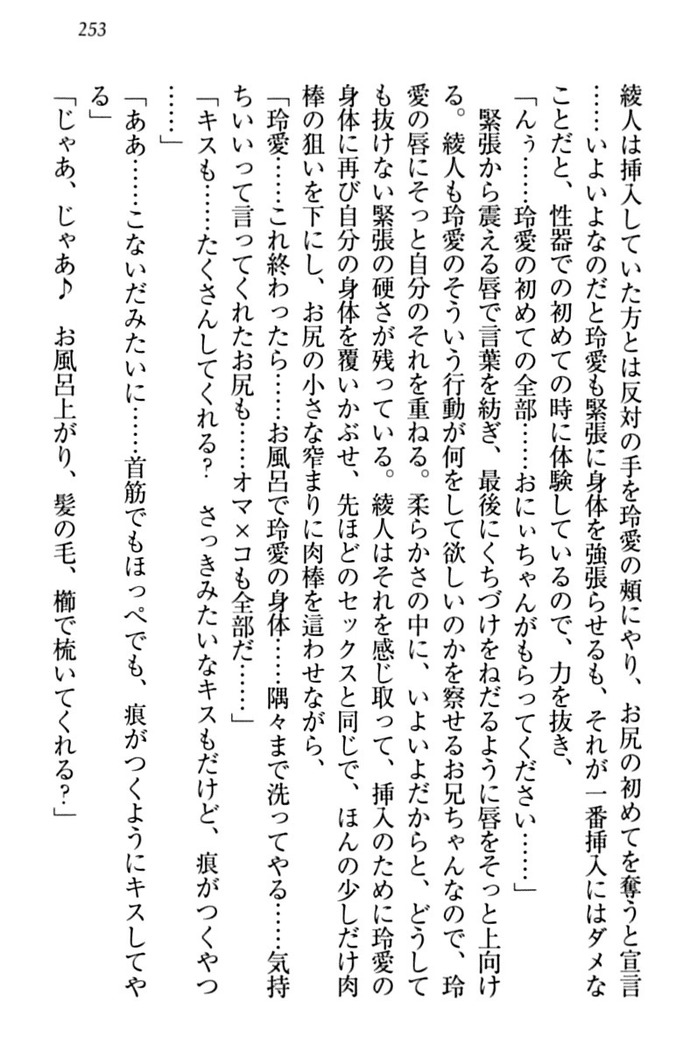 253
綾人は挿入していた方とは反対の手を玲愛の頰にやり、お尻の初めてを奪うと宣言
……いよいよなのだと玲愛も緊張に身体を強張らせるも、それが一番挿入にはダメな
ことだと、性器での初めての時に体験しているので、力を抜き、
「んぅ……玲愛の初めての全部……おにぃちゃんがもらってください……」
緊張から震える唇で言葉を紡ぎ、最後にくちづけをねだるように唇をそっと上向け
る。綾人も玲愛のそういう行動が何をして欲しいのかを察せるお兄ちゃんなので、玲
愛の唇にそっと自分のそれを重ねる。柔らかさの中に、いよいよだからと、どうして
も抜けない緊張の硬さが残っている。綾人はそれを感じ取って、挿入のために玲愛の
身体に再び自分の身体を覆いかぶせ、先ほどのセックスと同じで、ほんの少しだけ肉
棒の狙いを下にし、お尻の小さな窄まりに肉棒を這わせながら、
「玲愛……これ終わったら……お風呂で玲愛の身体……隅々まで洗ってやる……気持
ちいいって言ってくれたお尻も……オマ×コも全部だ……」
「キスも……たくさんしてくれる？　さっきみたいなキスもだけど、痕がつくやつ
……」
「ああ……こないだみたいに……首筋でもほっぺでも、痕がつくようにキスしてや
る」
「じゃあ、じゃあ♪　お風呂上がり、髪の毛、櫛で梳いてくれる？」